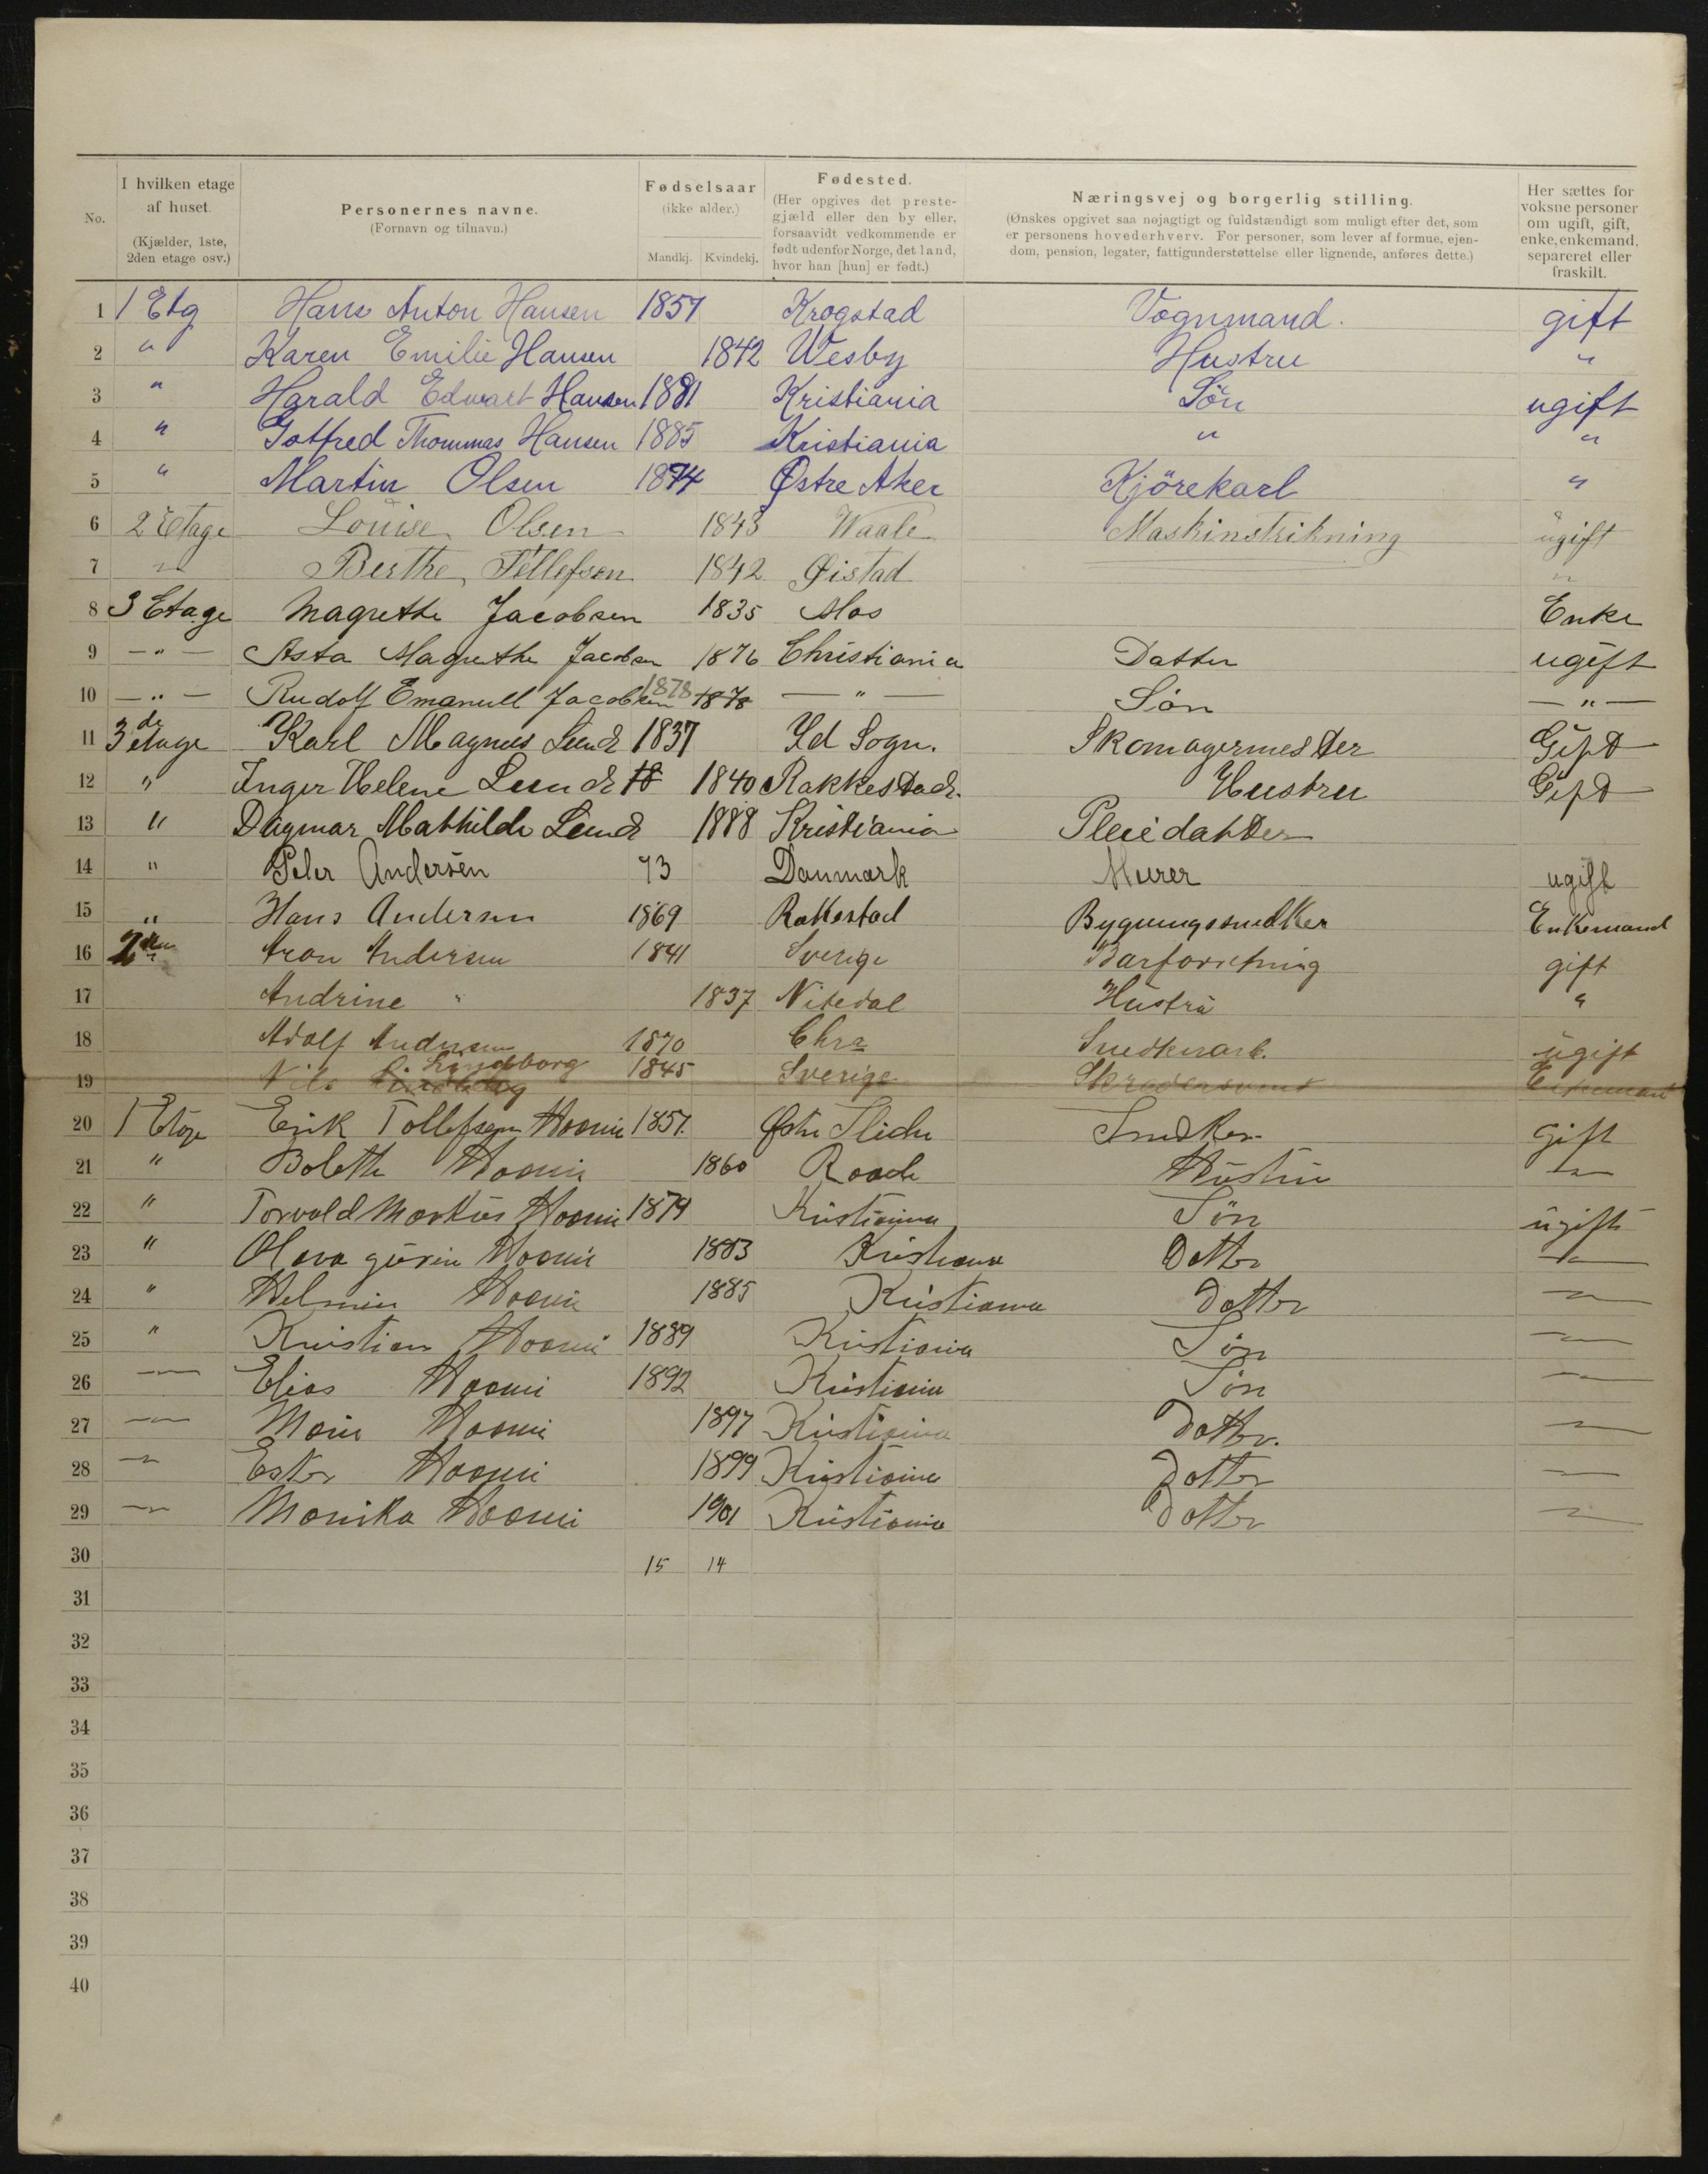 No.
I hvilken etage af huset.
(Kjælder, 1ste, 2den etage osv.)
Personernes navne.
(Fornavn og tilnavn.)
Fødselsaar
(ikke alder.)
Mandkj. Kvindekj.
Fødested.
(Her opgives det preste-
gjæld eller den by eller,
forsaavidt vedkommende er
født udenfor Norge, det land,
hvor han [hun] er født.)
Næringsvej og borgerlig stilling.
(Ønskes opgivet saa nøjagtigt og fuldstændigt som muligt efter det, som
er personens hovederhverv. For personer, som lever af formue, ejen-
dom, pension, legater, fattigunderstøttelse eller lignende, anføres dette.)
Her sættes for
voksne personer
om ugift, gift,
enke, enkemand,
separeret eller
fraskilt.
1 1 Etg Hans Anton Hansen 1857 Krogstad Vognmand. gift
2 " Karen Emilie Hansen 1842 Wesby Hustru "
3 " Harald Edwart Hansen 1881 Kristiania Søn ugift
4 " Gotfred Thommas Hansen 1885 Kristiania " "
5 " Martin Olsen 1874 Østre Aker Kjörekarl "
6 2 Etage Louise Olsen 1843 Waale Maskinstrikning ugift
7 " Berthe Tellefsen 1842 Øistad "
8 3 Etage Magrethe Jacobsen 1835 Mos Enke
9 — " — Asta Magrethe Jacobsen 1876 Christiania Datter ugift
10 — " — Rudolf Emanuell Jacobsen 1878 1878 — " — Søn — " —
11 3de etage Karl Magnus Lund 1837 Id Sogn. Skomagermester Gift
12 " Inger Helene Lund 18 1840 Rakkestad. Hustru Gift
13 " Dagmar Mathilde Lund 1888 Kristiania Pleiedatter
14 " Peter Andersen 73 Danmark Murer ugift
15 " Hans Andersen 1869 Rakkestad Bygningssnedker Enkemand
16 2den Aron Andersen 1841 Sverige Barforretning gift
17 Andrine " 1837 Nitedal Hustru "
18 Adolf Andersen 1870 Chra Snedkerarb. ugift
19 Nils Lindborg 1845 Sverige Skrædersvend Enkemand
20 1 Etage Erik Tollefsen Moeni 1857. Østre Slidre Snedker gift
21 " Bolette 1860 Raade Hustru "
22 " Torvald Markus 1879 Kristiania Søn ugift
23 " 1883 Kristiania Datter "
24 " 1885 Kristiania Datter "
25 " Kristian 1889 Kristiania Søn "
26 " Elias 1892 Kristiania Søn "
27 " 1897 Kristiania Datter. "
28 " Ester 1899 Kristiania Datter "
29 " Monika 1901 Kristiania Datter "
30 15 14
31
32
33
34
35
36
37
38
39
40